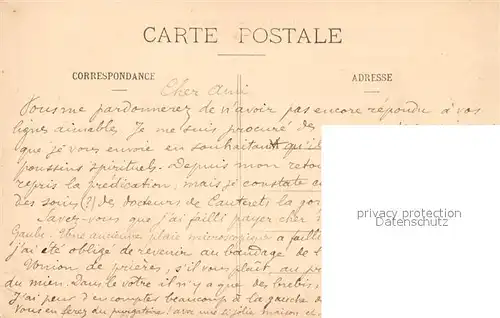 CARTE POSTALE
CORRESPONDANCE
ADRESSE
Cher Ami
Vous me pardonnerez de n'avoir pas encore répondu à vos
lignes aimables. Je me suis procuré des
que je vous envoie en souhaitant qu'i
poussins spirituels. Depuis mon reto
repris la prédication, mais je constate
des soins (?) des docteurs de Cauterets la
Savez-vous que j'ai failli payer cher
Gaube. Une ancienne plaie microscopique a failli
j'ai été obligé de revenir au bandage de l
Union de prières, s'il vous plaît, au
du mien. Dans le vôtre il n'y a que des brebis,
J'ai peur d'en compter beaucoup à la gauche d
Vous en ferez du purgatoire avec une si jolie maison, et
privacy protection
watermark